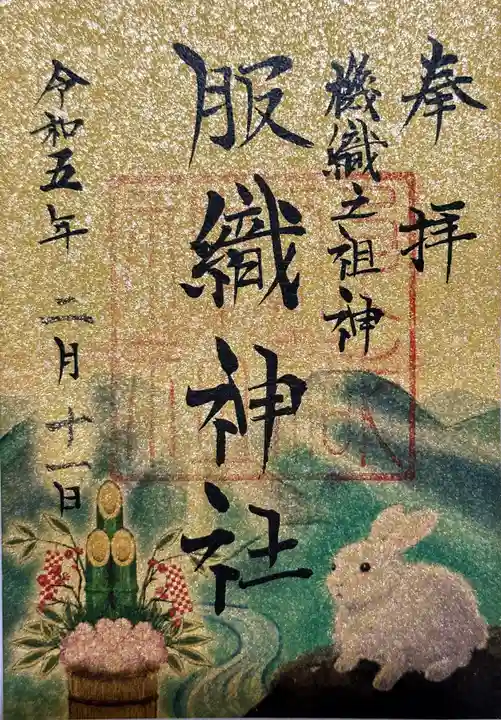 奉拝
機織之祖神
服織神社
令和五年 二月十一日